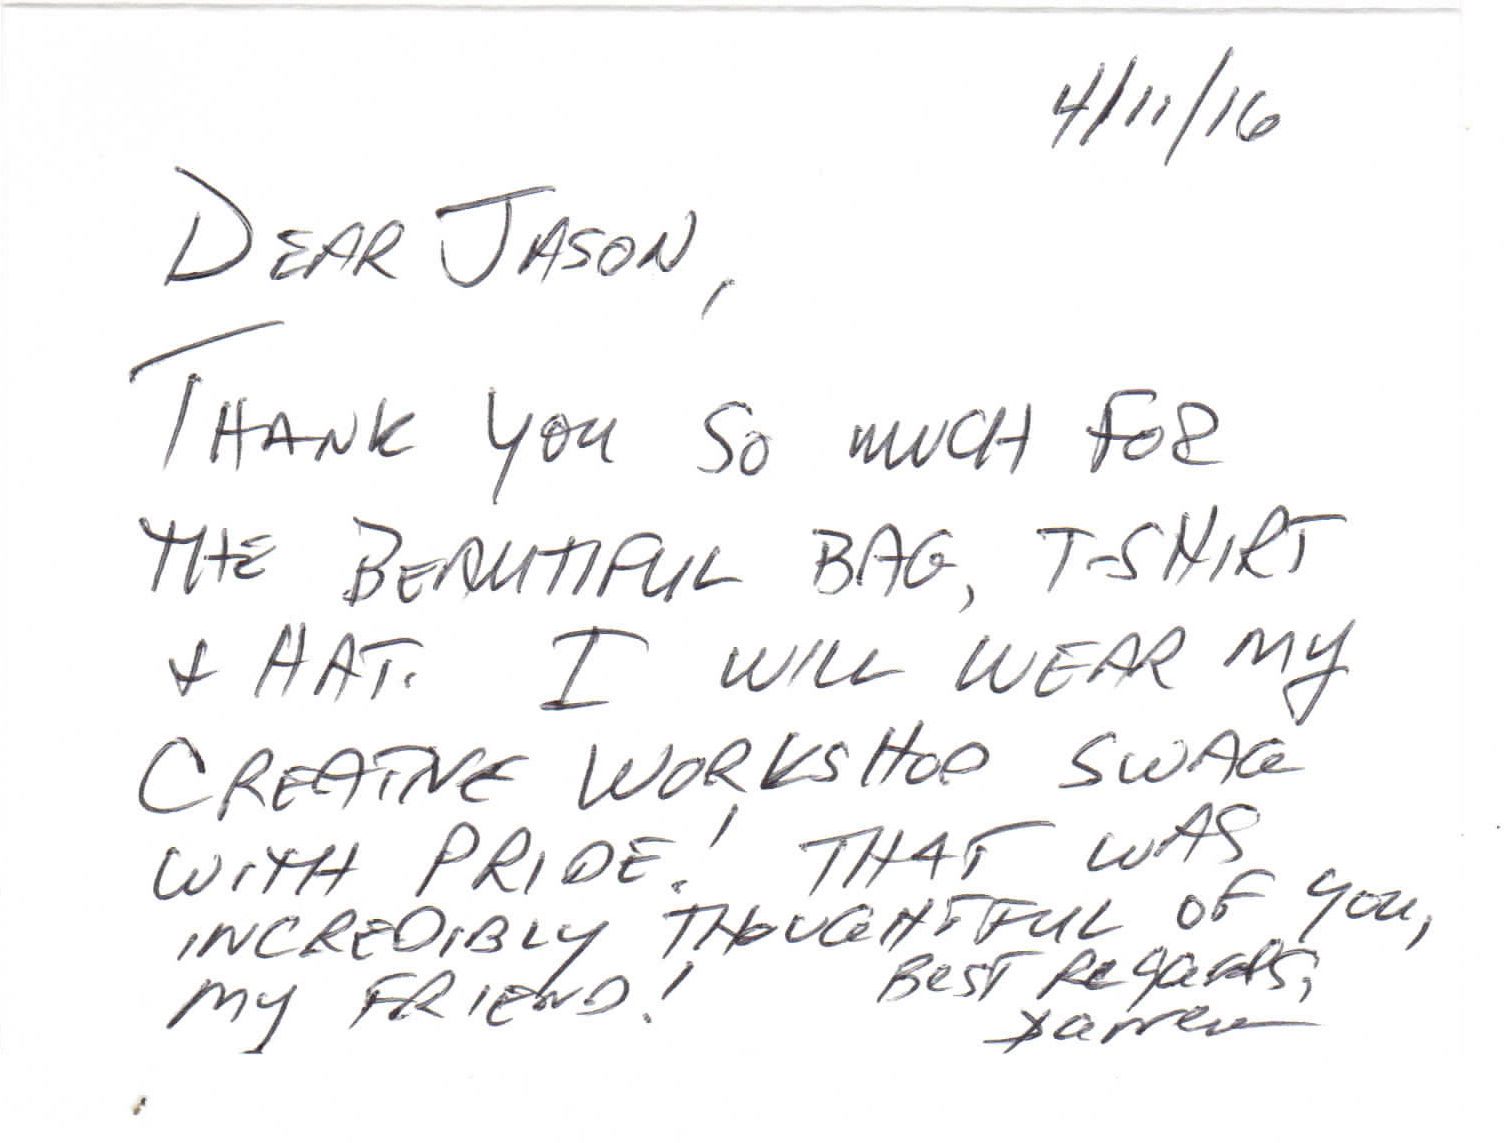 4/11/16
DEAR JASON,
THANK YOU SO MUCH FOR
THE BEAUTIFUL BAG, T-SHIRT
& HAT. I WILL WEAR MY
CREATIVE WORKSHOP SWAG
WITH PRIDE! THAT WAS
INCREDIBLY THOUGHTFUL OF YOU,
MY FRIEND! BEST REGARDS,
Darren